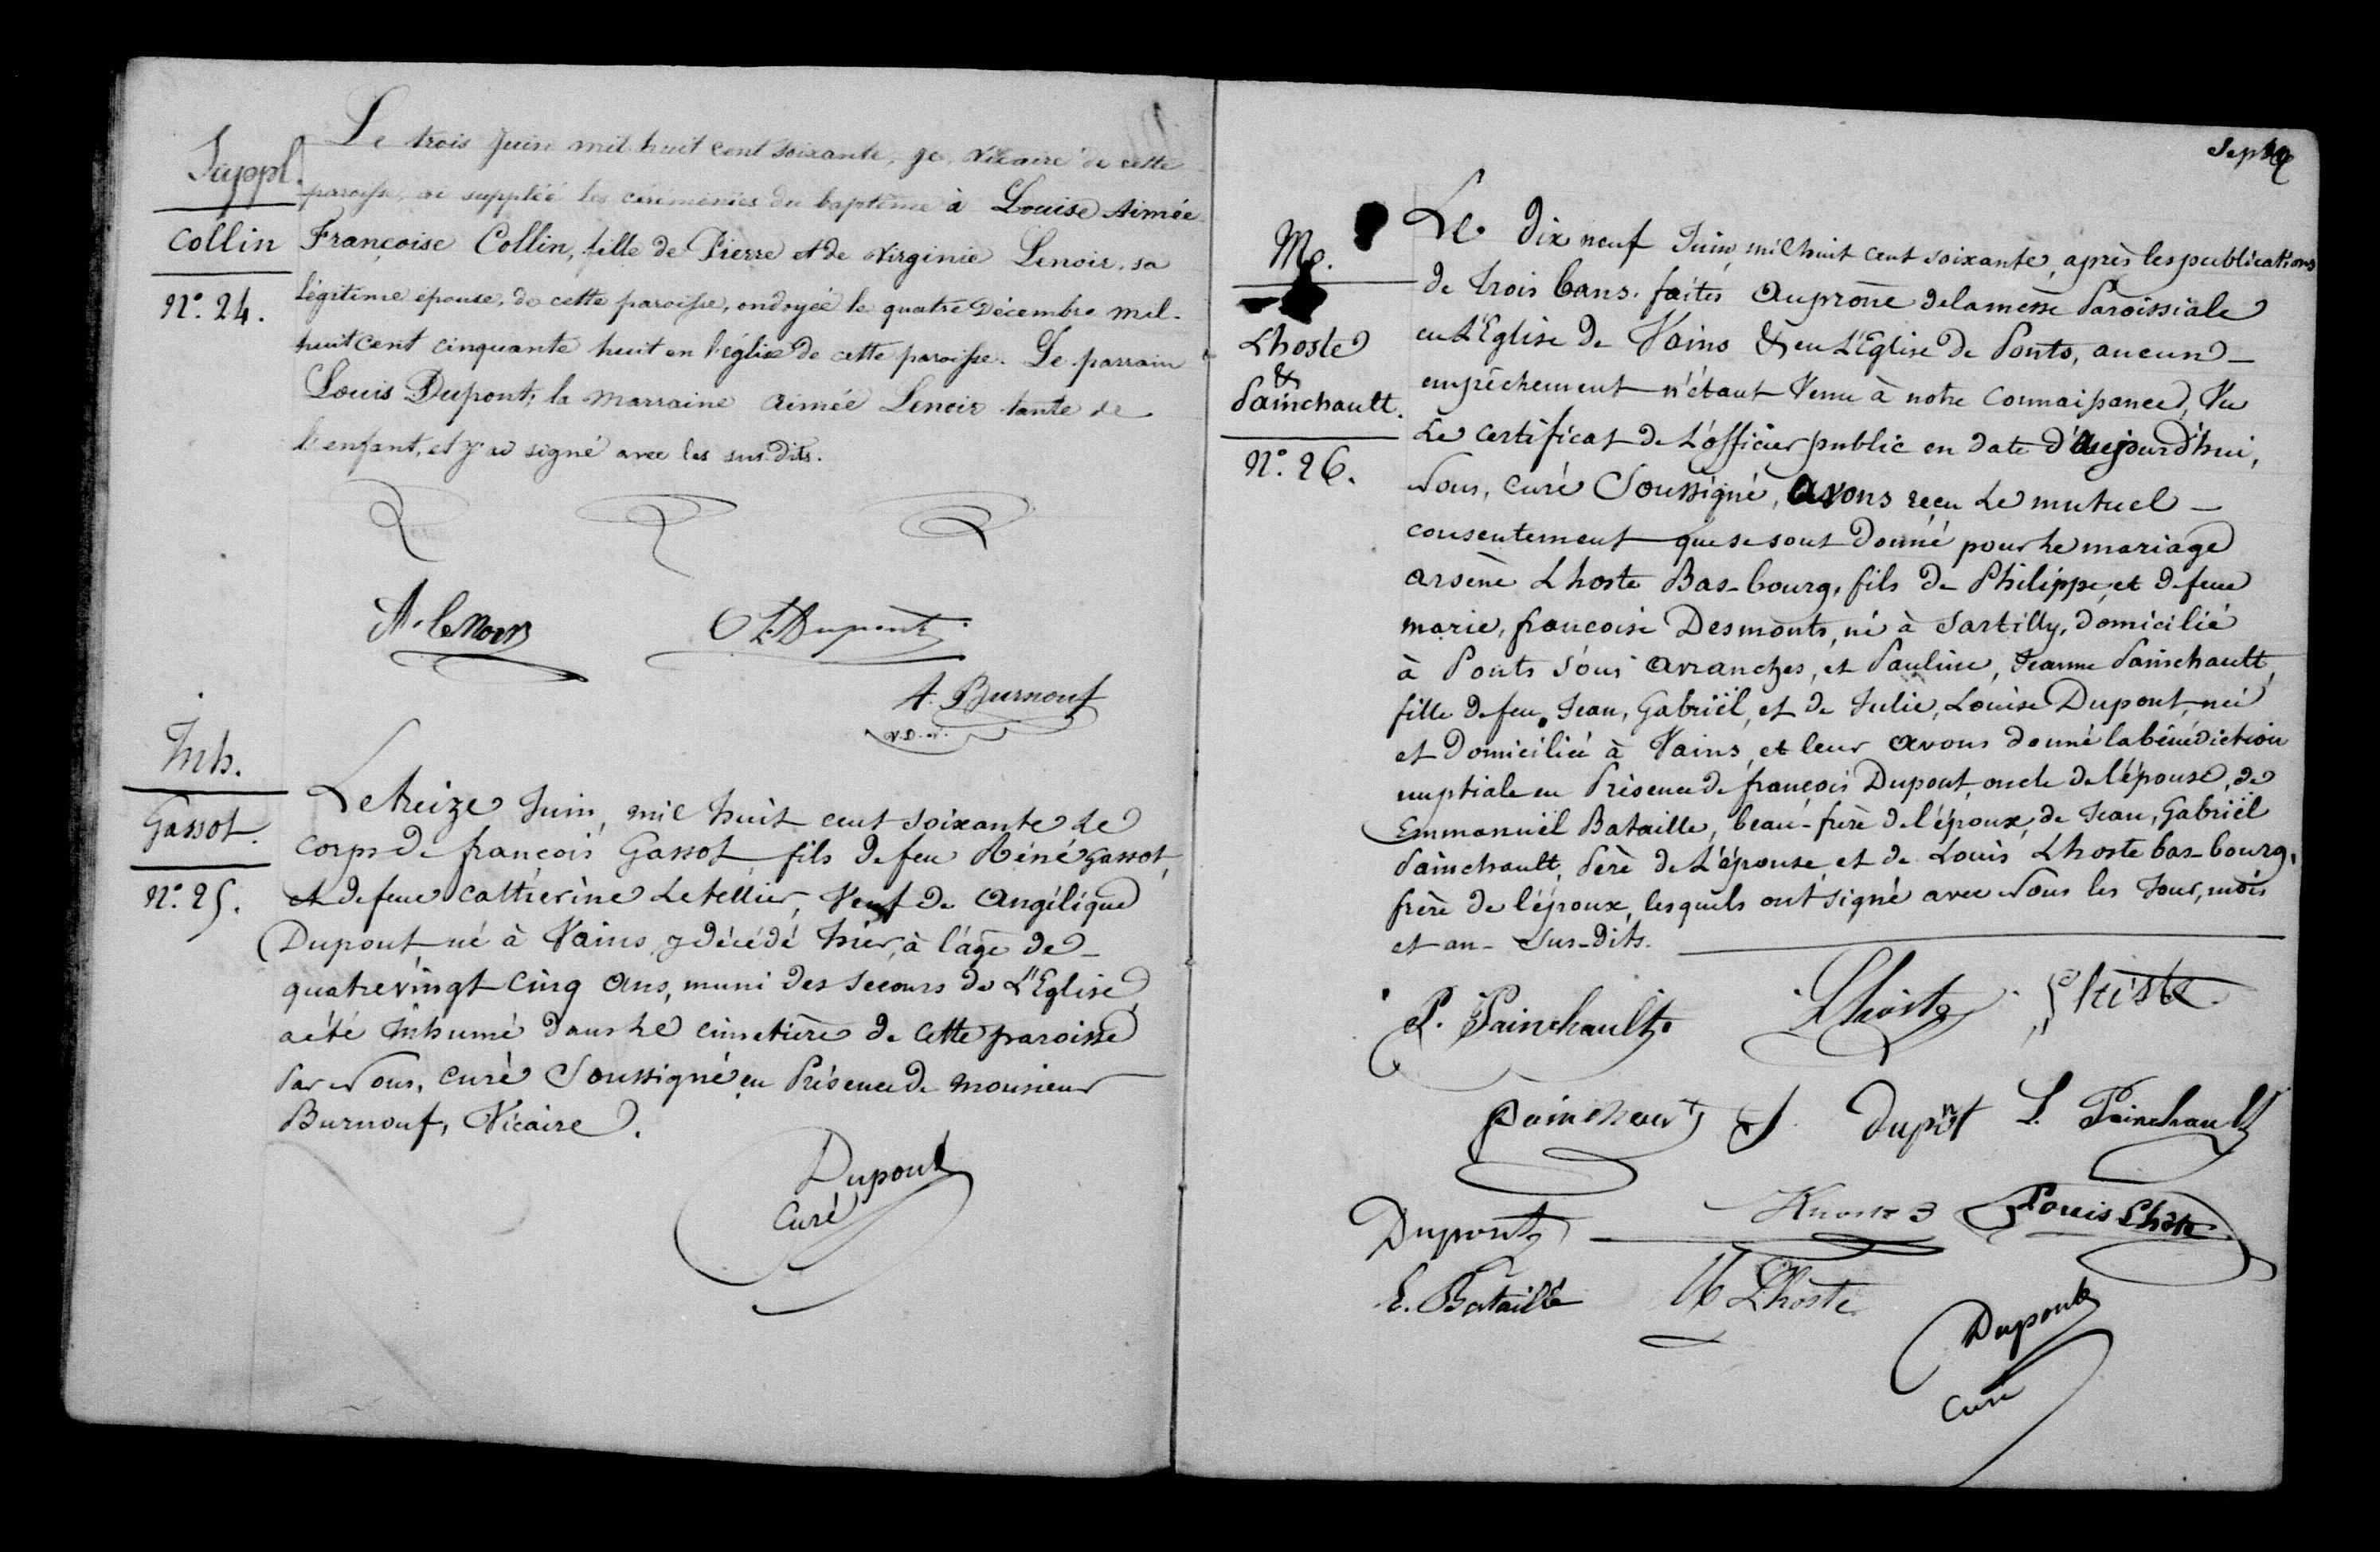 Suppl.
Collin
N.° 24.
Le trois Juin mil huit cent soixante, je, vicaire de cette
paroisse, ai suppléé les cérémonies du baptême à Louise Aimée
Françoise Collin, fille de Pierre et de Virginie Lenoir, sa
légitime épouse, de cette paroisse, ondoyée le quatre Décembre mil-
huit cent cinquante huit en l'église de cette paroisse. Le parrain
Louis Dupont, la marraine Aimée Lenoir tante de
l'enfant, et j'ai signé avec les sus-dits.
A. lenoir
L. Dupont
A. Burnouf
v.D.
Inh.
Gassot.
N.° 25.
Le treize Juin, mil huit cent soixante Le
Corps de françois Gassot fils de feu Réné Gassot,
et de feue Cathérine Letellier, Veuf de Angélique
Dupont, né à Vains, y décédé hier, à l'âge de
quatrevingt cinq ans, muni des secours de L'Eglise,
a été Inhumé dans Le cimetière de cette paroisse
Par Nous, Curé Soussigné en Présence de monsieur
Burnouf, Vicaire.
Dupont
Curé
Sept
Me.
Lhoste
&
Painchault.
N.° 26.
Le dix neuf Juin mil huit cent soixante, après les publications
de trois bans. faites au prône de la messe Paroissiale
en L'Eglise de Vains & en L'Eglise de Ponts, aucun
empêchement n'étant Venu à notre Connaissance, Vu
Le Certificat de L'officier public en date d'aujourd'hui,
Nous, Curé Soussigné, avons reçu Le mutuel
consentement que se sont Donné pour Le mariage
arsène Lhoste Bas-bourg, fils de Philippe, et de feue
marie, françoise Desmonts, né à Sartilly, domicilié
à Ponts sous avranches, et Pauline, Jeanne Painchault,
fille de feu Jean, Gabriël, et de Julie, Louise Dupont, née
et Domiciliée à Vains, et leur avons donné la bénédiction
nuptiale en Présence de françois Dupont, oncle de l'épouse, de
Emmanuël Bataille, beau-frère de l'époux, de Jean, Gabriël
Painchault, Père de L'épouse, et de Louis Lhoste bas-bourg,
frère de l'époux, lesquels ont signé avec Nous les Jour, mois
et an- Sus-dits.
P. Painchault
Lhoste
Lhoste
painchaut
J. Dupont
L. Painchault
Dupont
Louis Lhote
E. Bataille
Lhoste
Dupont
Curé